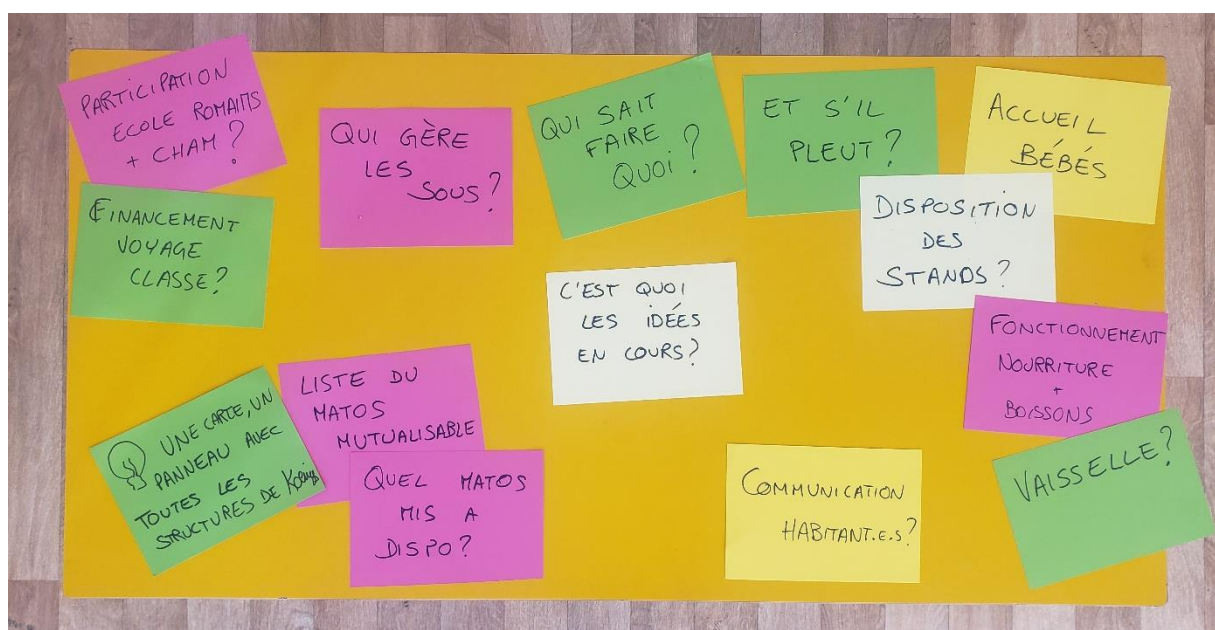 PARTICIPATION
ECOLE ROMAINS
+ CHAM ?
FINANCEMENT
VOYAGE
CLASSE ?
QUI GÈRE
LES
SOUS ?
QUI SAIT
FAIRE
QUOI ?
ET S'IL
PLEUT ?
ACCUEIL
BÉBÉS
DISPOSITION
DES
STANDS ?
C'EST QUOI
LES IDÉES
EN COURS ?
FONCTIONNEMENT
NOURRITURE
+
BOISSONS
UNE CARTE, UN
PANNEAU AVEC
TOUTES LES
STRUCTURES DE
LISTE DU
MATOS
MUTUALISABLE
QUEL MATOS
MIS A
DISPO ?
COMMUNICATION
HABITANT.E.S ?
VAISSELLE ?